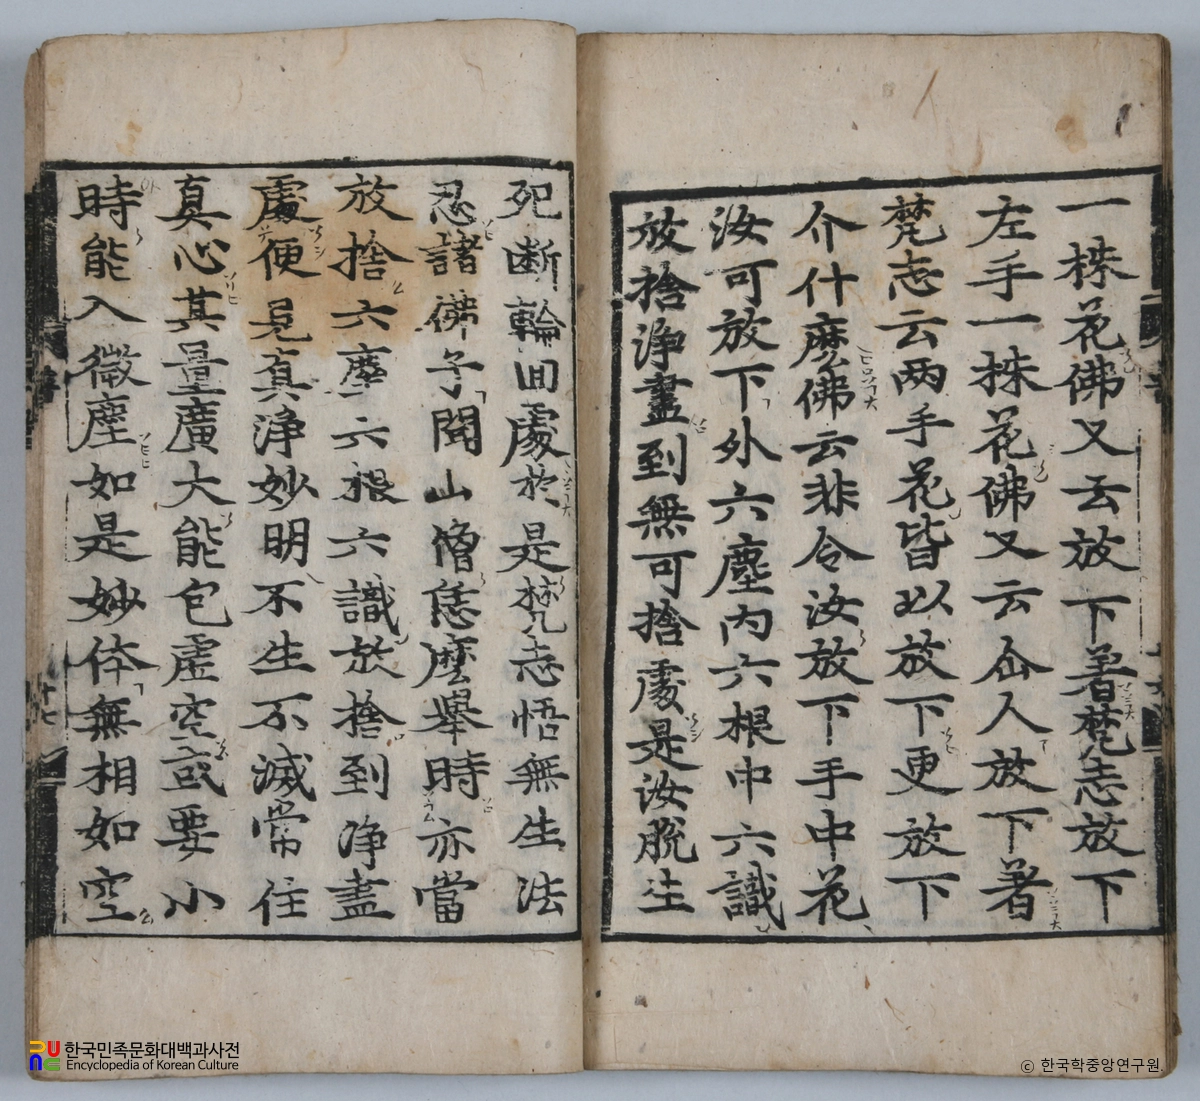 一株花佛又云放下着梵志放下
左手一株花佛又云仙人放下著
梵志云两手花皆以放下更放下
介什麽佛云非令汝放下手中花
汝可放下外六塵內六根中六識
放捨淨盡到無可捨處是汝脫生
死斷輪回處於是梵志悟無生法
忍諸佛子聞山僧恁麽舉時亦當
放捨六塵六根六識放捨到淨盡
處便見真淨妙明不生不滅常住
真心其量廣大能包虛空或要小
時能入微塵如是妙体無相如空
한국민족문화대백과사전
Encyclopedia of Korean Culture
ⓒ 한국학중앙연구원.